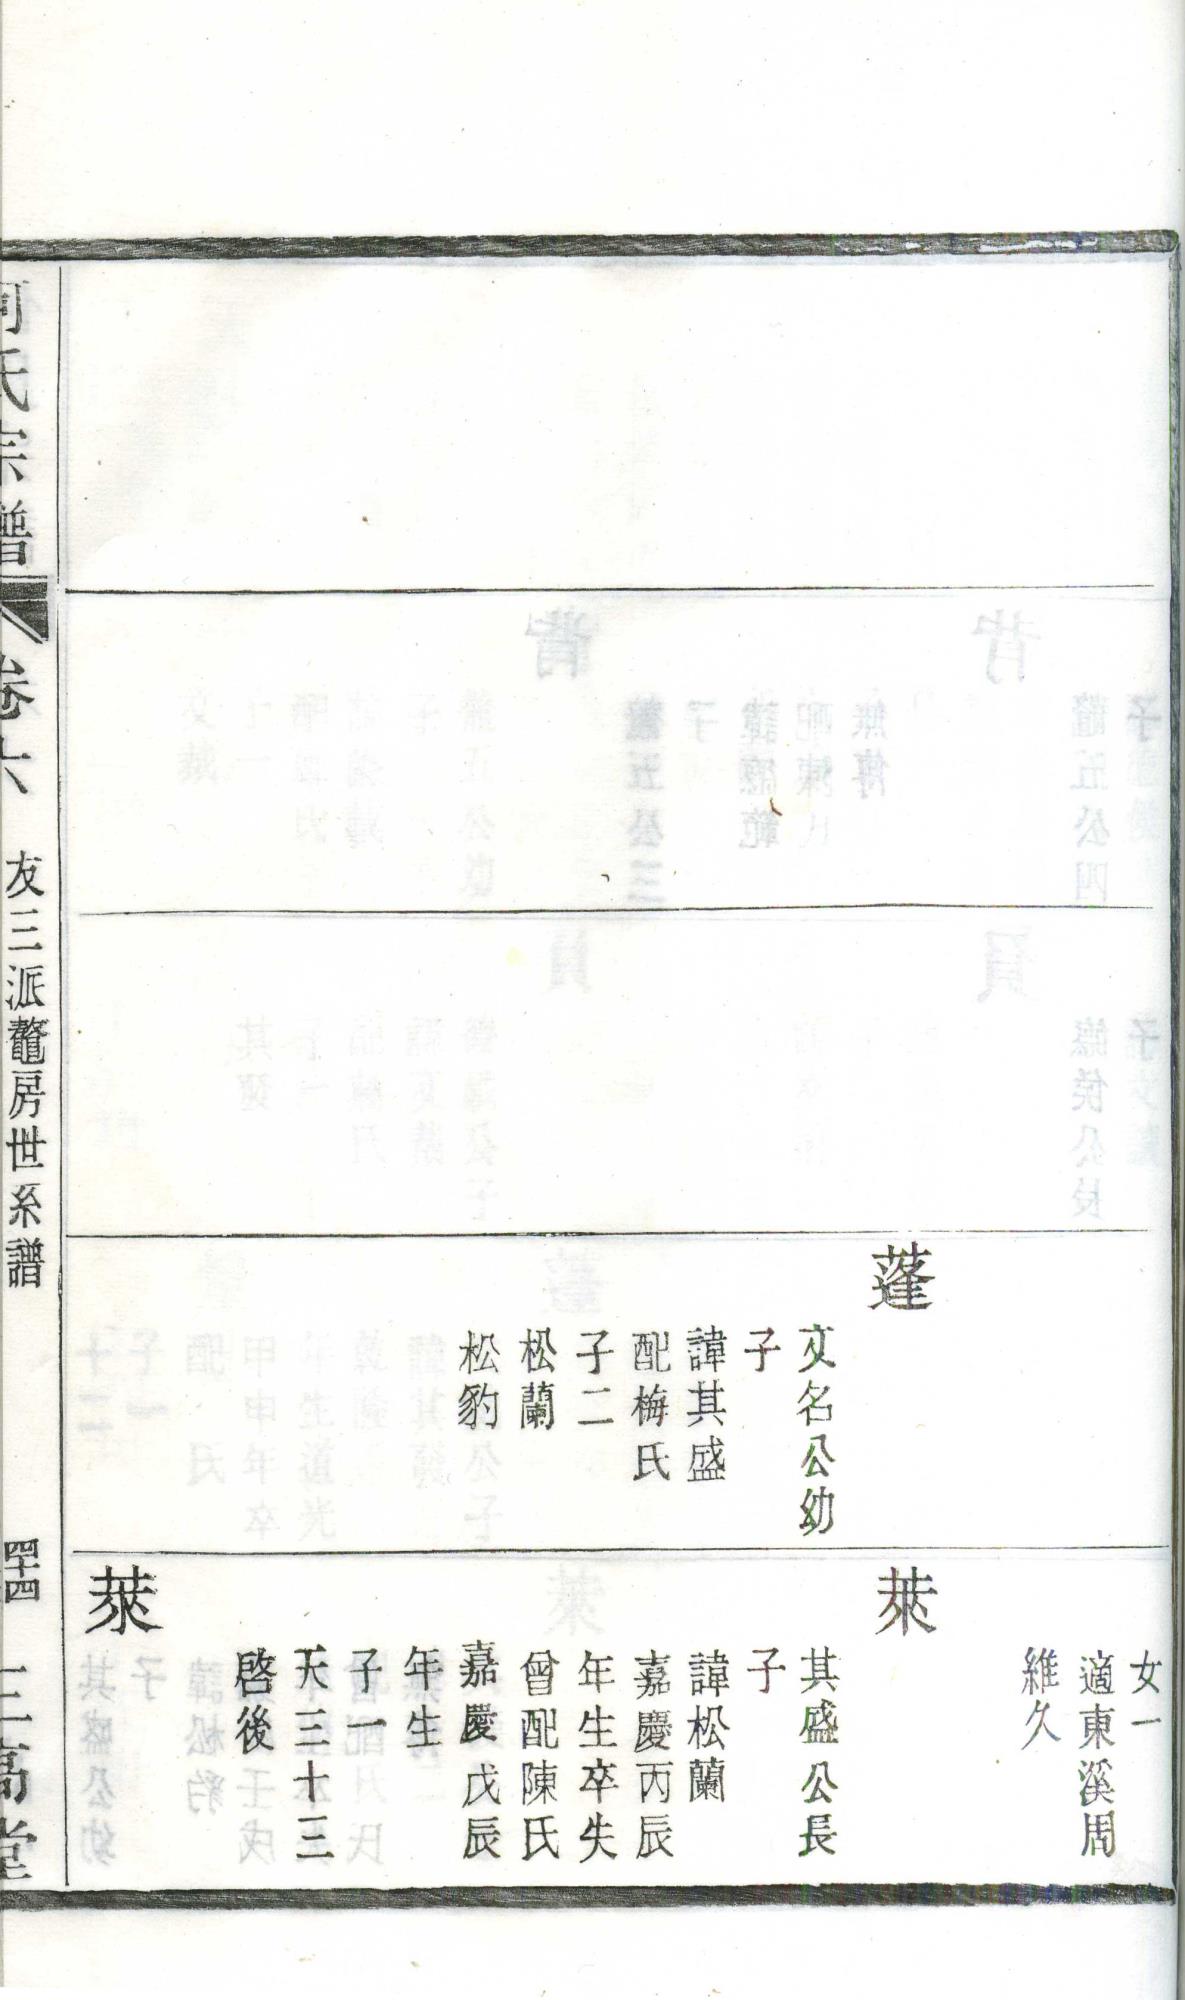 蓬
文名公幼
子
諱其盛
配梅氏
子二
松蘭
松豹
女一
適東溪周
維久
萊
其盛公長
子
諱松蘭
嘉慶丙辰
年生卒失
曾配陳氏
嘉慶戊辰
年生
子一
天三十三
啓後
萊
何氏宗譜
卷六
友三派鼇房世系譜
四十四
三高堂